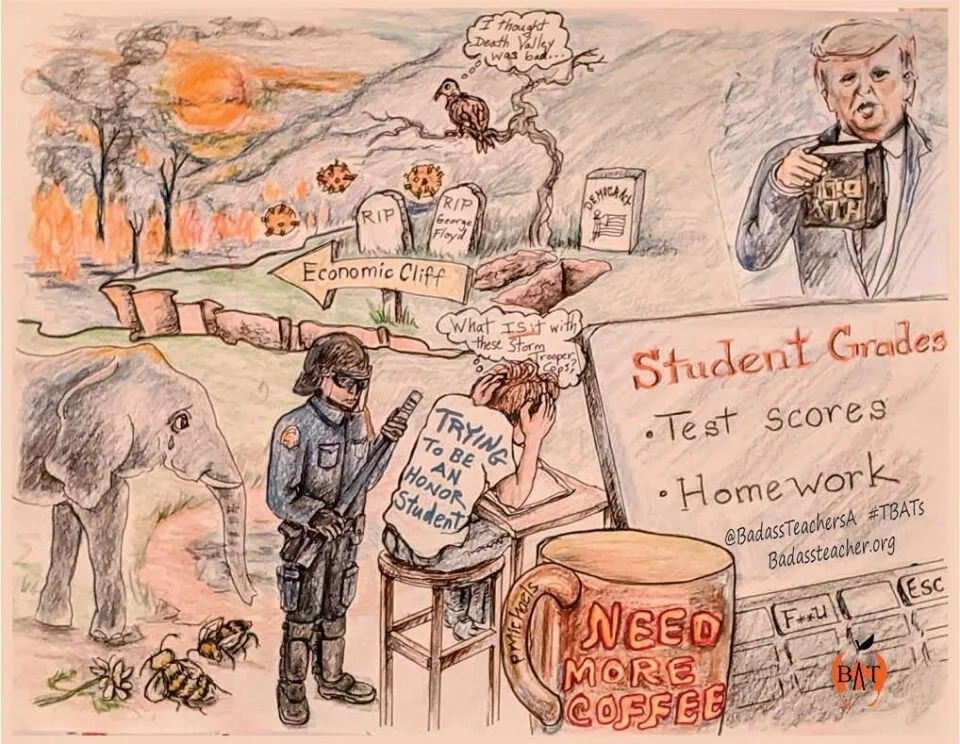 I thought
Death Valley
was bad...
RIP
RIP
George
Floyd
DEMOCRACY
Economic Cliff
What IS it with
these Storm
Trooper
Cops?
TRYING
To BE
AN
HONOR
Student
Student Grades
• Test scores
• Homework
@BadassTeachersA #TBATs
Badassteacher.org
F**U
ESC
NEED
MORE
COFFEE
BAT